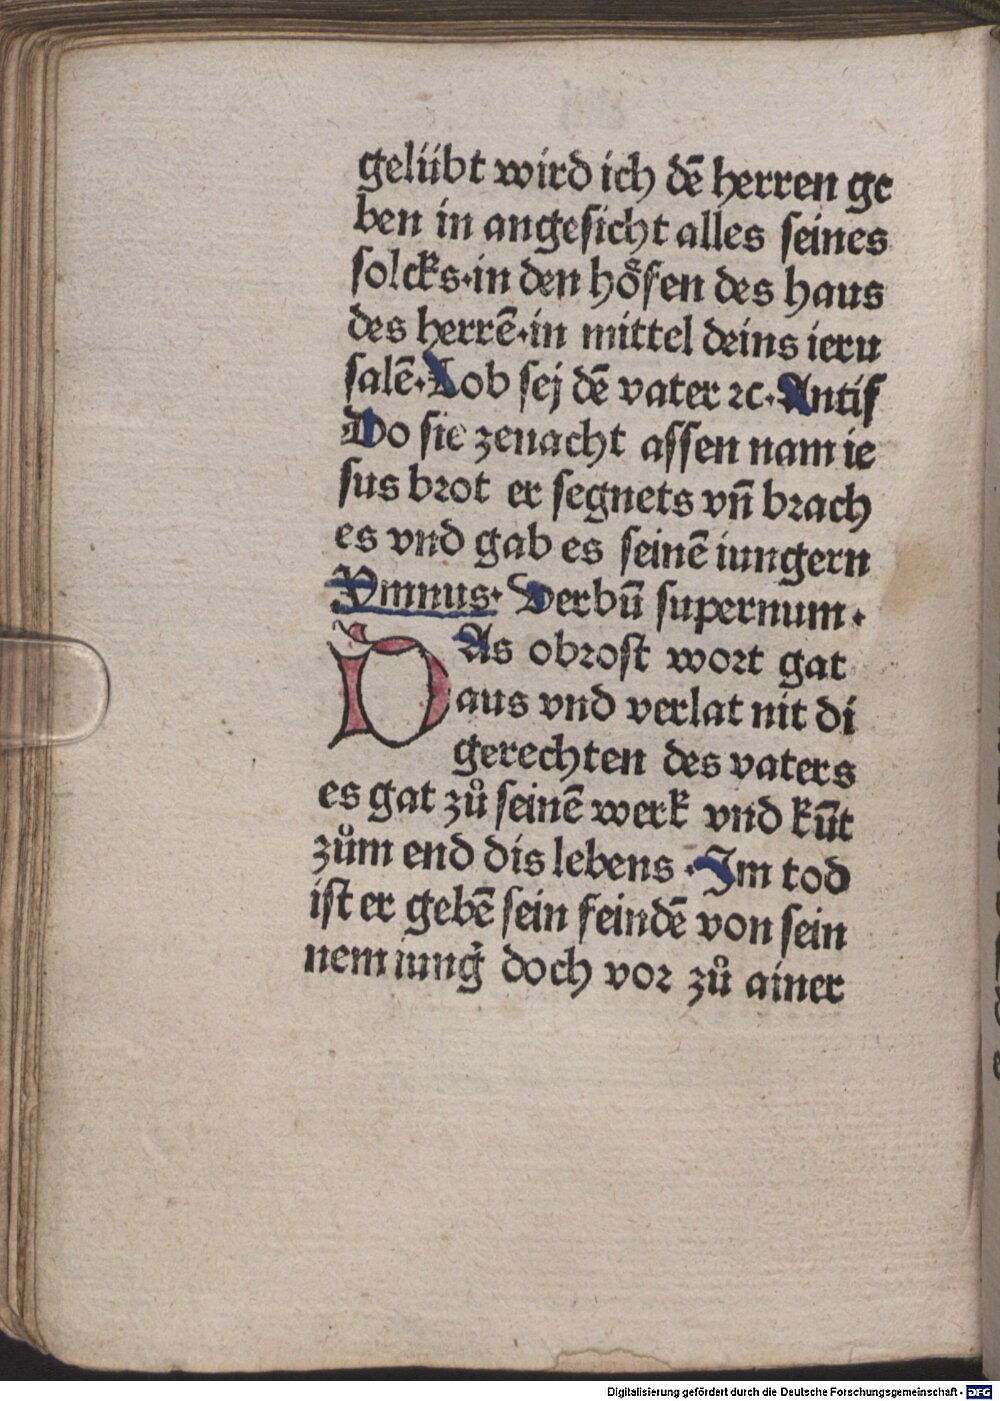 gelübt wird ich dē herren ge
ben in angesicht alles seines
solcks·in den hoͤfen des haus
des herrē·in mittel deins ieru
salē·Lob sej dē vater ⁊c·Antif
Do sie zenacht assen nam ie
sus brot er segnets vn̄ brach
es vnd gab es seinē iungern
Ymnus· Verbū supernum·
DAs obrost wort gat
aus vnd verlat nit di
gerechten des vaters
es gat zů seinē werk vnd kūt
zům end dis lebens·Im tod
ist er gebē sein feindē von sein
nem iung̉ doch vor zů ainer
Digitalisierung gefördert durch die Deutsche Forschungsgemeinschaft - DFG